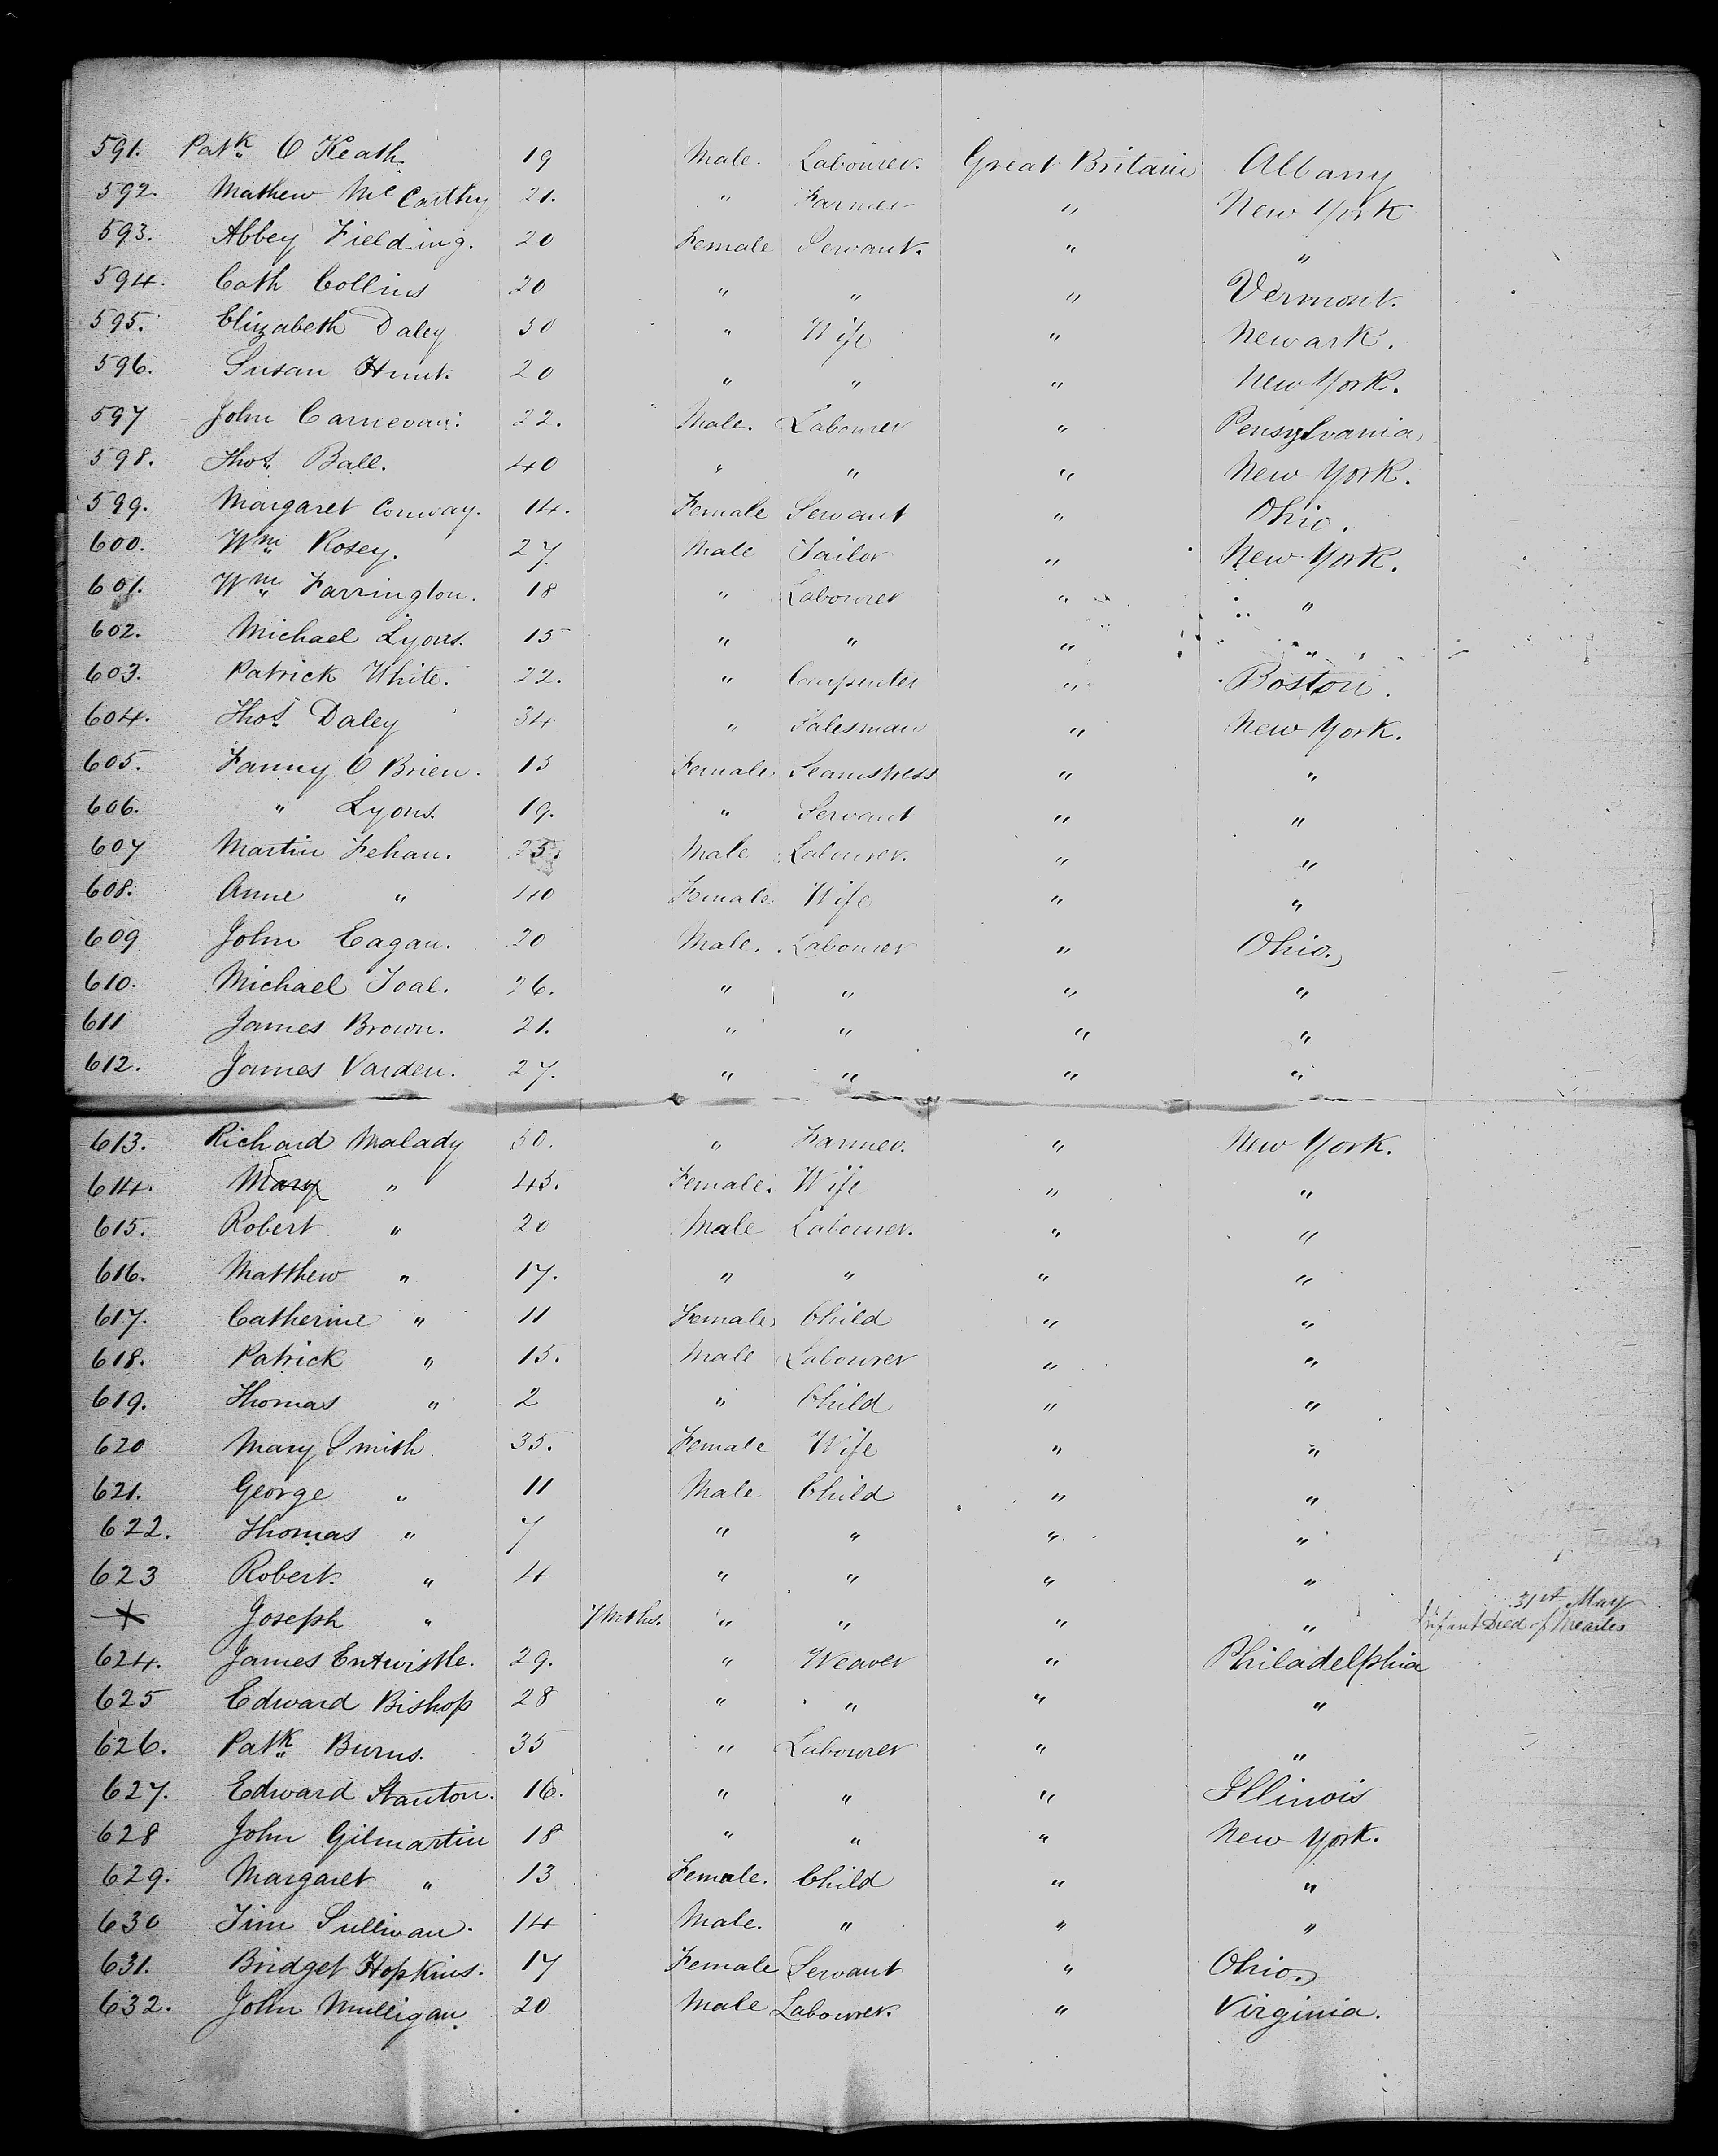 591. Patk O Keath. 19 Male. Labourer. Great Britain Albany
592. Mathew Mc Carthy 21. " Farmer " New York
593. Abbey Fielding. 20 Female Servant. " "
594. Cath Collins 20 " " " Vermont.
595. Elizabeth Daley 30 " Wife " Newark.
596. Susan Hunt. 20 " " " New York.
597 John Carnevan. 22. Male. Labourer " Pensylvania
598. Thos. Ball. 40 " " " New York.
599. Margaret Conway. 14. Female Servant " Ohio.
600. Wm Rosey. 27. Male Tailor " New York.
601. Wm Farrington. 18 " Labourer " "
602. Michael Lyons. 15 " " " "
603. Patrick White. 22. " Carpenter " Boston.
604. Thos. Daley 34 " Salesman " New York.
605. Fanny O Brien. 13 Female Seamstress " "
606. " Lyons. 19. " Servant " "
607 Martin Fehan. 25. Male Labourer. " "
608. Anne " 40 Female Wife " "
609 John Eagan. 20 Male. Labourer " Ohio.
610. Michael Toal. 26. " " " "
611 James Brown. 21. " " " "
612. James Varden. 27. " " " "
613. Richard Malady 50. " Farmer. " New York.
614. Mary " 45. Female. Wife " "
615. Robert " 20 Male Labourer. " "
616. Matthew " 17. " " " "
617. Catherine " 11 Female Child " "
618. Patrick " 15. Male Labourer " "
619. Thomas " 2 " Child " "
620 Mary Smith 35. Female Wife " "
621. George " 11 Male Child " "
622. Thomas " 7 " " " "
623 Robert. " 4 " " " "
Joseph " 7 Mths. " " " " 31st May Infant Died of Measles
624. James Entwistle. 29. " Weaver " Philadelphia
625 Edward Bishop 28 " " " "
626. Patk Burns. 35 " Labourer " "
627. Edward Stanton. 16. " " " Illinois
628 John Gilmartin 18 " " " New York.
629. Margaret " 13 Female. Child " "
630 Tim Sullivan. 14 Male. " " "
631. Bridget Hopkins. 17 Female Servant " Ohio.
632. John Mulligan. 20 Male Labourer. " Virginia.